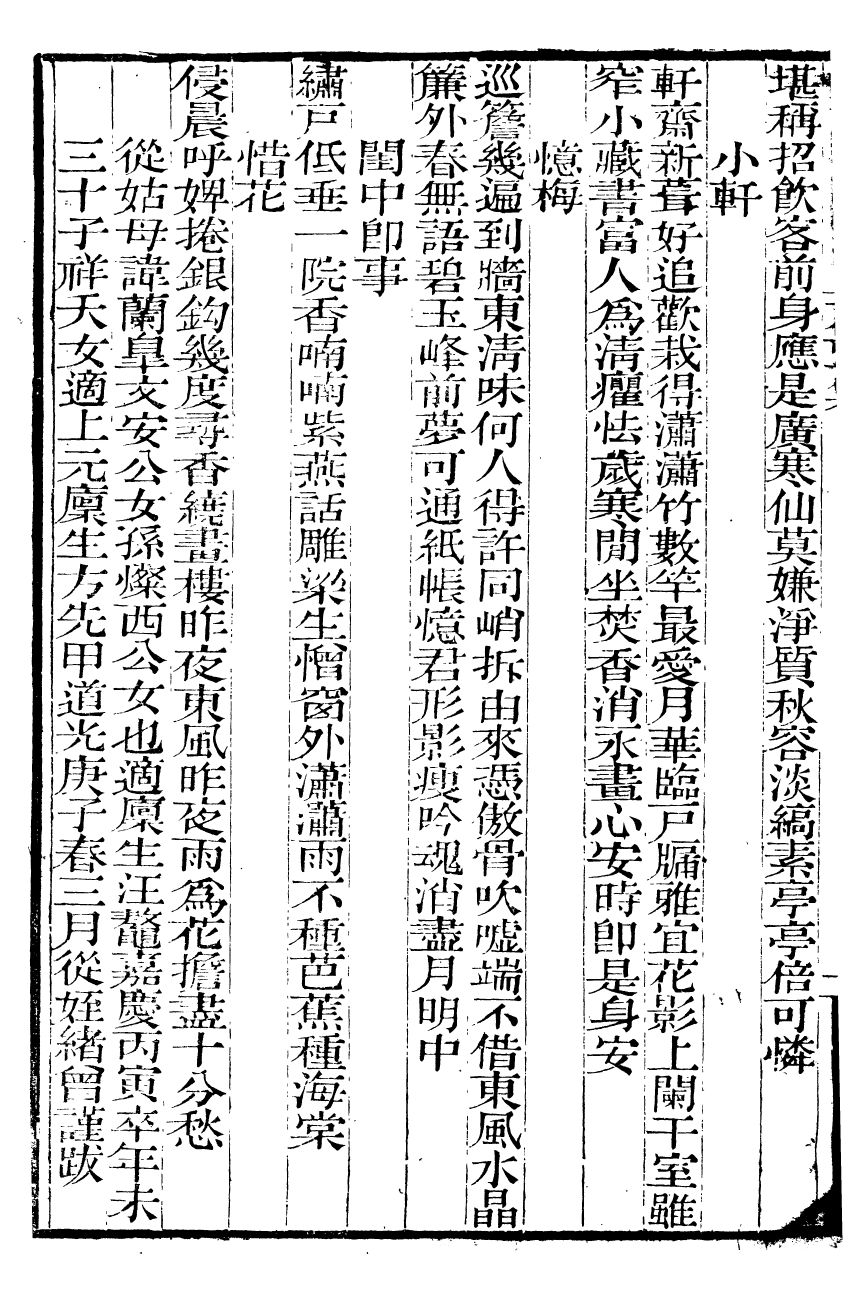 堪稱招飲客前身應是廣寒仙莫嫌淨質秋容淡縞素亭亭倍可憐
小軒
軒齋新葺好追歡栽得瀟瀟竹數竿最愛月華臨戸牖雅宜花影上闌干室雖
窄小藏書富人為淸癯怯歲寒閒坐焚香消永晝心安時卽是身安
憶梅
巡簷幾遍到牆東淸味何人得許同峭拆由來憑傲骨吹噓端不借東風水晶
簾外春無語碧玉峰前夢可通紙帳憶君形影瘦吟魂消盡月明中
閨中卽事
繡戸低垂一院香喃喃紫燕話雕梁生憎窗外瀟瀟雨不種芭蕉種海棠
惜花
侵晨呼婢捲銀鈎幾度尋香繞畫樓昨夜東風昨夜雨為花擔盡十分愁
從姑母諱蘭皐文安公女孫燦西公女也適廩生汪鼇嘉慶丙寅卒年未
三十子祥天女適上元廩生方先甲道光庚子春三月從姪緒曾謹跋